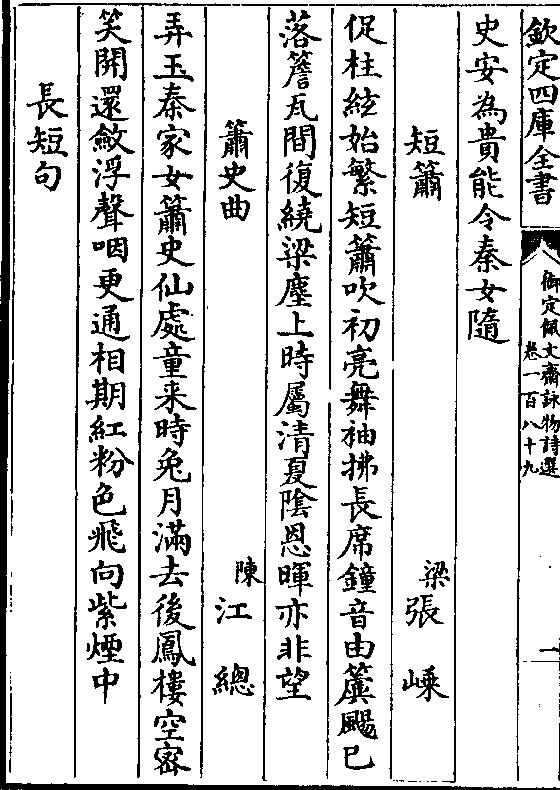 欽定四庫全書
御定佩文齋詠物詩選
卷一百八十九
一
史安為貴能令秦女隨
短簫
梁張嵊
促柱絃始繁短簫吹初亮舞袖拂長席鐘音由簴颺已
落簷瓦間復繞梁塵上時屬清夏陰恩暉亦非望
簫史曲
陳江總
弄玉秦家女簫史仙處童来時兔月滿去後鳳樓空宻
笑開還斂浮聲咽更通相期紅粉色飛向紫煙中
長短句